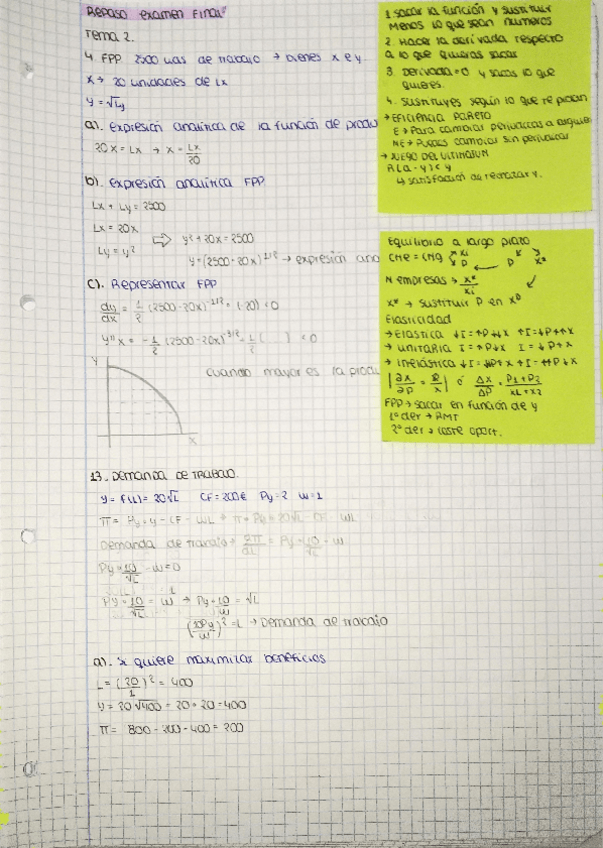 Repaso examen Final
Tema 2.
4. FPP 2500 uds de trabajo → bienes x e y
x → 20 unidades de Lx
y = √Ly
a). Expresión analítica de la función de produ
20x = Lx → x = Lx/20
b). Expresión analítica FPP
Lx + Ly = 2500
Lx = 20x
Ly = y² ⇨ y² + 20x = 2500
y = (2500 - 20x)^1/2 → expresión ana
c). Representar FPP
dy/dx = 1/2 (2500 - 20x)^-1/2 · (-20) < 0
y''x = -1/2 (2500 - 20x)^-3/2 · 1/2 ( ) < 0
y
cuando mayor es la produ
x
13. DEMANDA DE TRABAJO.
y = f(L) = 20√L CF = 200€ Py = 2 w = 1
π = Py · y - CF - WL → π = Py · 20√L - CF - WL
Demanda de trabajo → ∂π/∂L = Py · 10/√L - w
Py · 10/√L - w = 0
Py · 10/√L = w → Py · 10/w = √L
(10Py/w)² = L → Demanda de trabajo
a). Si quiere maximizar beneficios
L = (20/1)² = 400
y = 20√400 = 20 · 20 = 400
π = 800 - 200 - 400 = 200
1. sacar la función y sustituir
menos lo que sean números
2. Hacer la derivada respecto
a lo que quieras sacar
3. Derivada = 0 y sacas lo que
quieres.
4. Sustituyes según lo que te pidan
→ EFICIENCIA PARETO
E → Para cambiar perjudicas a alguien
NE → Puedes cambiar sin perjudicar
→ JUEGO DEL ULTIMATUM
↳ satisfacción de rechazar y.
Equilibrio a largo plazo
CMe = CMg xi p p xd
N empresas → x*/xi
x* → sustituir p en xD
Elasticidad
→ Elástica ↓I = ↑P↓↓x ↑I = ↓P↑↑x
→ unitaria I = ↑P↓x I = ↓P↑x
→ Inelástica
|∂x/∂p · p/x| ó Δx/Δp · P1+P2/x1+x2
FPP → sacar en función de y
1ª der → RMT
2ª der → coste oport.